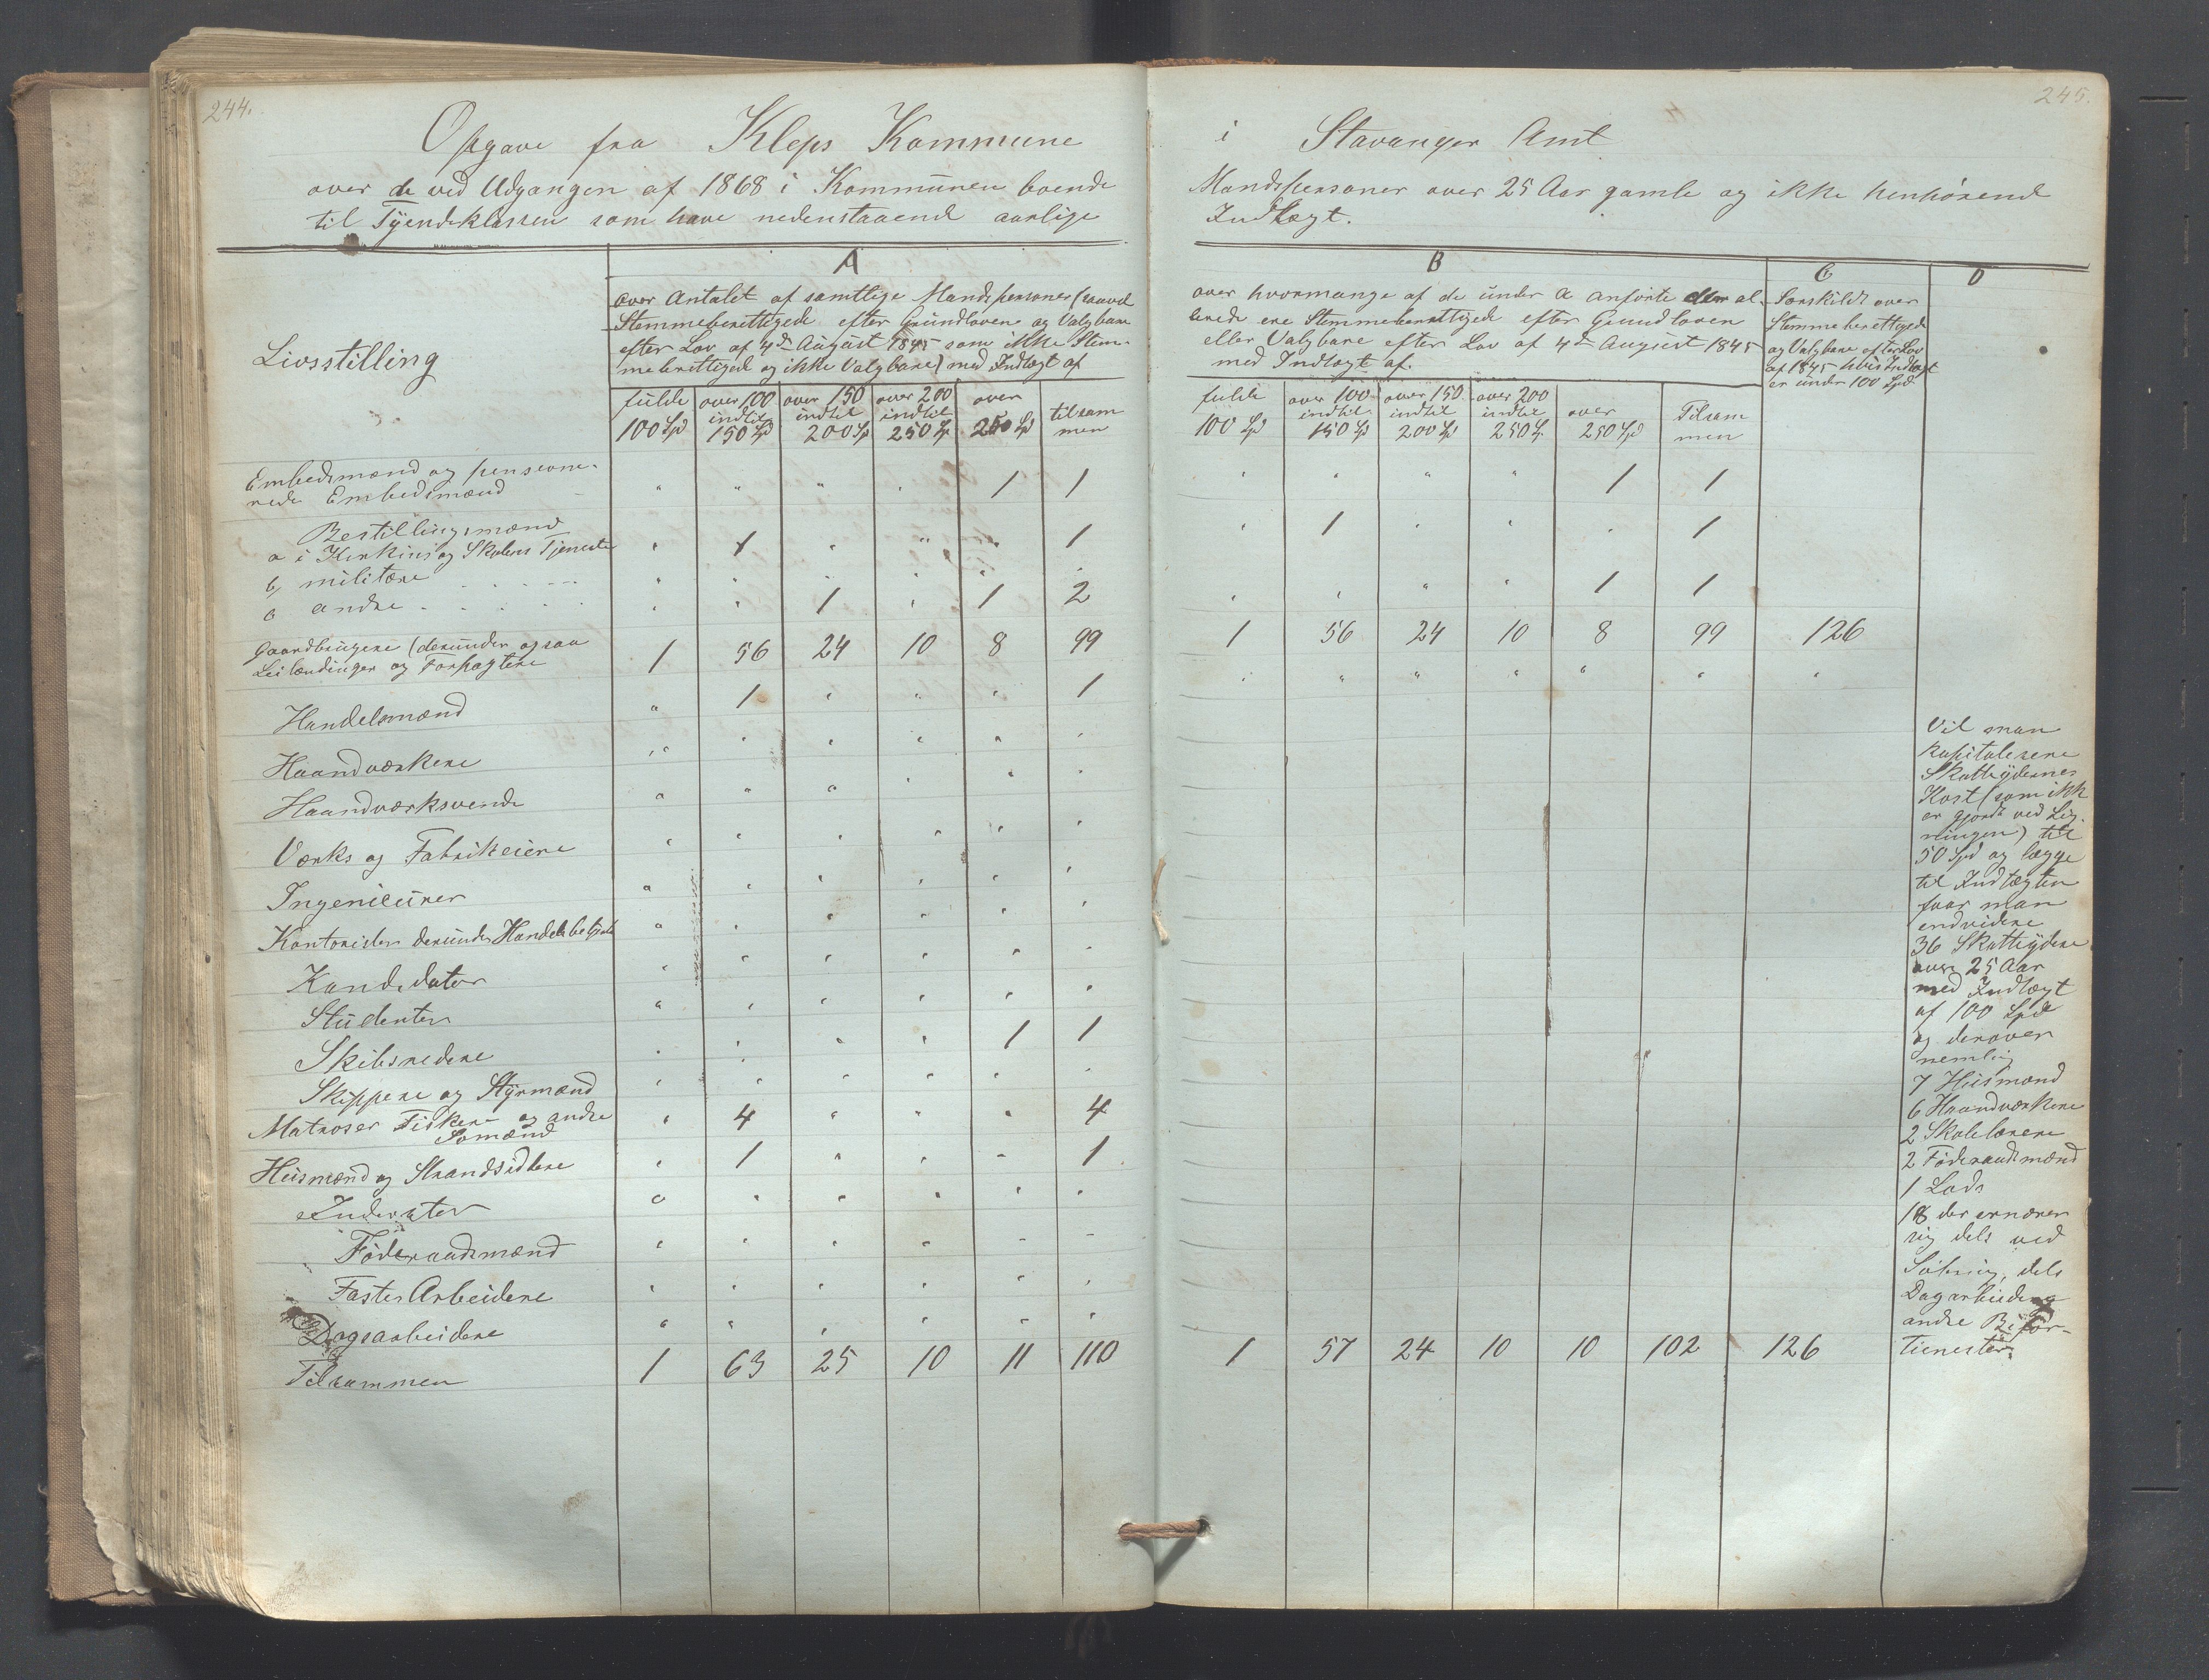 244.
Opgave fra Kleps Kommune
over de ved Udgangen af 1868 i Kommunen boende
til Tyendeklassen som have nedenstaaende aarlige
Livsstilling
A
over Antallet af samtlige Mandspersoner (saavel
Stemmeberettigede efter Grundloven og Valgbare
efter Lov af 4de August 1845 som ikke Stem-
meberettigede og ikke Valgbare) med Indtægt af
fulde 100 Spd | over 100 indtil 150 Spd | over 150 indtil 200 Sp | over 200 indtil 250 Sp | over 250 Spd | tilsam men
Embedsmænd og pensione-
rede Embedsmænd " " " " 1 1
Bestillingsmænd
a i Kirkens og Skolens Tjeneste " 1 " " " 1
b, militære " " " " " "
c andre " " 1 " 1 2
Gaardbrugere (derunder ogsaa
Leilændinger og Forpagtere 1 56 24 10 8 99
Handelsmænd " 1 " " " 1
Haandværkere " " " " " "
Haandværksvende " " " " " "
Værks og Fabrikeiere " " " " " "
Ingenieurer " " " " " "
Kontorister derunder Handelsbetjente " " " " " "
Kandidater " " " " " "
Studenter " " " " " "
Skibsredere " " " " 1 1
Skippere og Styrmænd " " " " " "
Matroser Fiskere og andre
Sømænd " 4 " " " 4
Huusmænd og Strandsiddere " 1 " " " 1
Inderster " " " " " "
Føderaadsmænd " " " " " "
Faste Arbeidere " " " " " "
Dagsarbeidere " " " " " "
Tilsammen 1 63 25 10 11 110
245.
i Stavanger Amt
Mandspersoner over 25 Aar gamle og ikke henhørende
Indtægt.
B
over hvormange af de under A anførte der al-
lerede ere Stemmeberettigede efter Grundloven
eller Valgbare efter Lov af 4de August 1845
med Indtægt af.
fulde 100 Spd | over 100 indtil 150 Sp | over 150 indtil 200 Sp | over 200 indtil 250 Sp. | over 250 Spd | Tilsam men
C
Særskildt over
Stemmeberettigede
og Valgbare efter Lov
af 1845 hvis Indtægt
er under 100 Spd
D
" " " " 1 1
" 1 " " " 1
" " " " 1 1
1 56 24 10 8 99 126
" " " " " " "
1 57 24 10 10 102 126
Vil man
kapitalisere
Skatteydernes
Kost (som ikke
er gjordt ved Lig-
ningen) til
50 Spd og lægge
til Indtægten
faar man
endvidere
36 Skatteydere
over 25 Aar
med Indtægt
af 100 Spd
og derover
nemlig
7 Husmænd
6 Haandværkere
2 Skolelærere
2 Føderaadsmænd
1 Lods
18 der ernærer
sig dels ved
dels
Dagarbeide og
andre Bifor-
tienester.